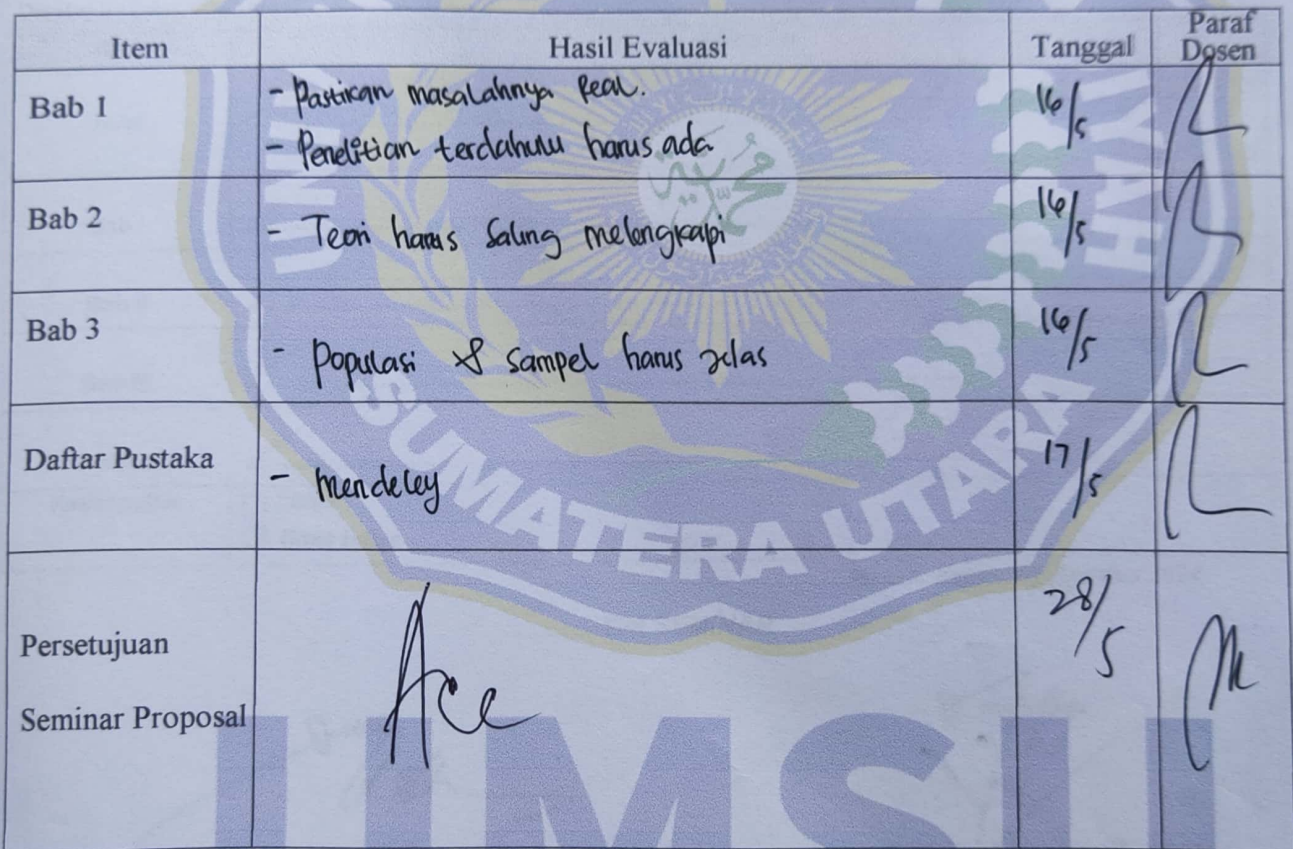 Item Hasil Evaluasi Tanggal Paraf Dosen
Bab 1
- Pastikan masalahnya Real.
- Penelitian terdahulu harus ada
16/5
Bab 2
- Teori harus Saling melengkapi
16/5
Bab 3
- Populasi & Sampel harus jelas
16/5
Daftar Pustaka
- Mendeley
17/5
Persetujuan
Seminar Proposal
Acc
28/5
SUMATERA UTARA
UMSU